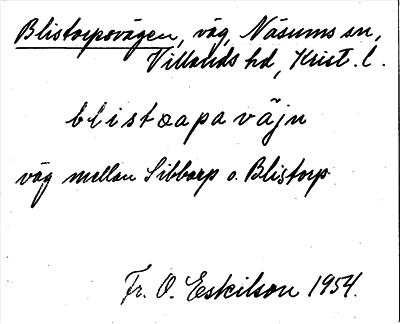 Blistorpsvägen, väg, Näsums sn,
Villands hd, Krist. l.
blistɑapa väjn
väg mellan Sibbarp o. Blistorp
Fr. O. Eskilson 1954.